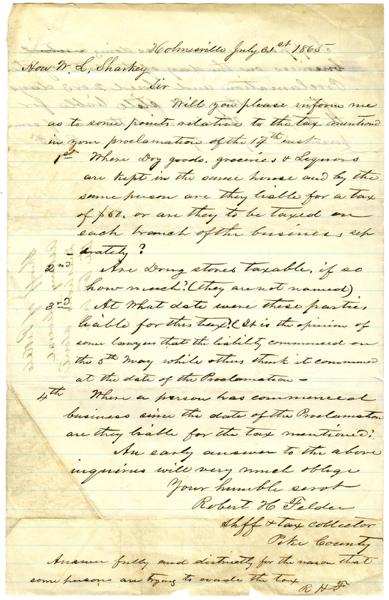 Holmesville July 21st 1865
Hon W. L. Sharkey
Sir
Will you please inform me
as to some points relative to the tax mentioned
in your proclamation of the 17th inst.
1st Where Dry goods, groceries & Liquors
are kept in the same house and by the
same person are they liable for a tax
of $60, or are they to be taxed on
each branch of the business sep
arately?
2nd - Are Drug stores taxable, if so
how much? (they are not named)
3rd At What date were these parties
liable for this tax? (It is the opinion of
some lawyers that the liability commenced on
the 5th May while others think it commenced
at the date of the Proclamation -
4th Where a person has commenced
business since the date of the Proclamation
are they liable for the tax mentioned?
An early answer to the above
inquiries will very much oblige
Your humble servt
Robert H Felder
Shff & tax collector
Pike County
Answer fully and distinctly for the reason that
some persons are trying to evade the tax
R H F